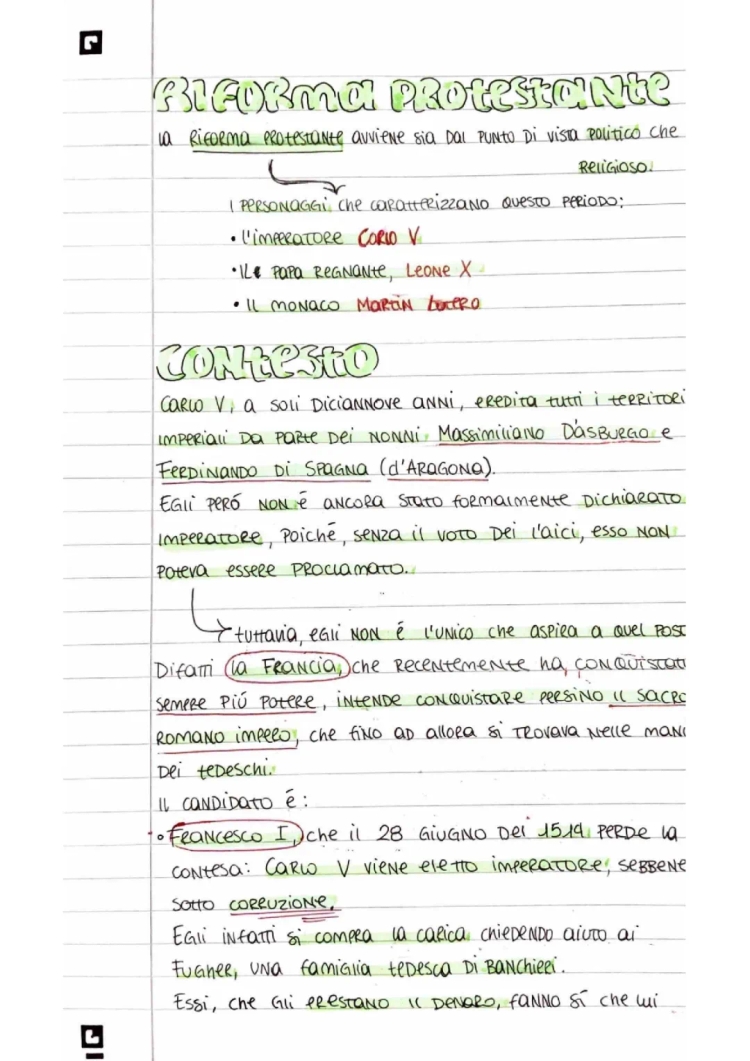 RIFORMA PROTESTANTE
la RIFORMA PROTESTANTE avviene sia dal punto di vista politico che
religioso.
I personaggi che caratterizzano questo periodo:
• l'imperatore Carlo V
• Il papa regnante, Leone X
• Il monaco Martin Lutero
CONTESTO
Carlo V, a soli diciannove anni, eredita tutti i territori
imperiali da parte dei nonni Massimiliano D'Asburgo e
Ferdinando di Spagna (d'Aragona).
Egli peró non é ancora stato formalmente dichiarato
imperatore, poiché, senza il voto dei l'aici, esso non
poteva essere proclamato.
tuttavia, egli non é l'unico che aspira a quel post
Difatti la Francia, che recentemente ha conquistat
sempre piú potere, intende conquistare persino il Sacro
Romano impero, che fino ad allora si trovava nelle mani
dei tedeschi.
Il candidato é:
• Francesco I, che il 28 giugno del 1514 perde la
contesa: Carlo V viene eletto imperatore, sebbene
sotto corruzione.
Egli infatti si compra la carica chiedendo aiuto ai
Fugher, una famiglia tedesca di banchieri.
Essi, che gli prestano il denaro, fanno sí che lui